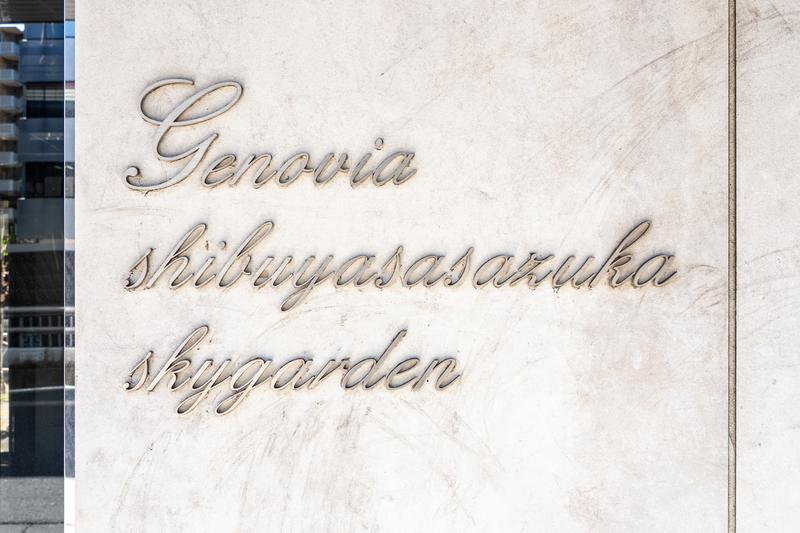 Genovia
shibuyasasazuka
skygarden